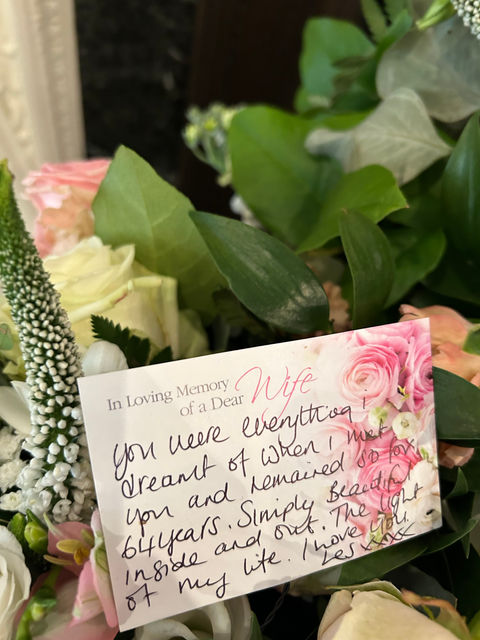 In Loving Memory
of a Dear Wife
you were everything I
dreamt of when I met
you and remained so for
64 years. Simply Beautiful
inside and out. The light
of my life. I love you.
Les xxxx